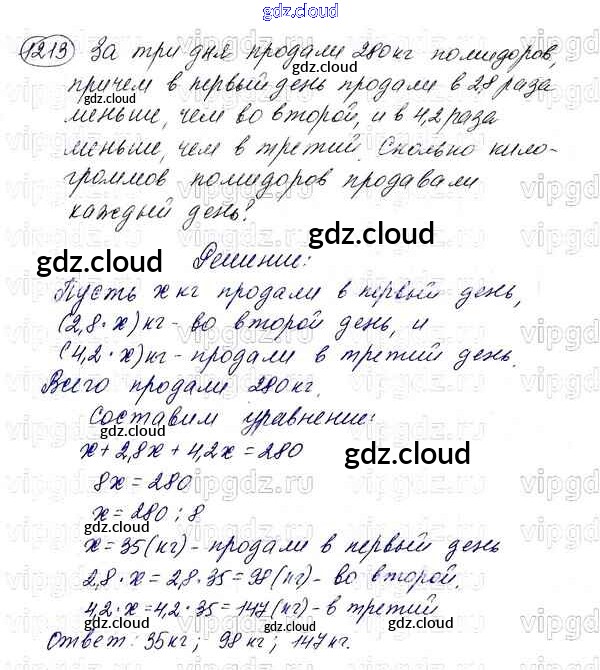 gdz.cloud
1213 За три дня продали 280 кг помидоров,
причем в первый день продали в 2,8 раза
меньше, чем во второй, и в 4,2 раза
меньше, чем в третий. Сколько кило-
граммов помидоров продавали
каждый день?
Решение:
Пусть x кг продали в первый день,
(2,8 · x) кг - во второй день, и
(4,2 · x) кг - продали в третий день.
Всего продали 280 кг.
Составим уравнение:
x + 2,8x + 4,2x = 280
8x = 280
x = 280 : 8
x = 35 (кг) - продали в первый день
2,8 · x = 2,8 · 35 = 98 (кг) - во второй.
4,2 · x = 4,2 · 35 = 147 (кг) - в третий
Ответ: 35 кг; 98 кг; 147 кг.